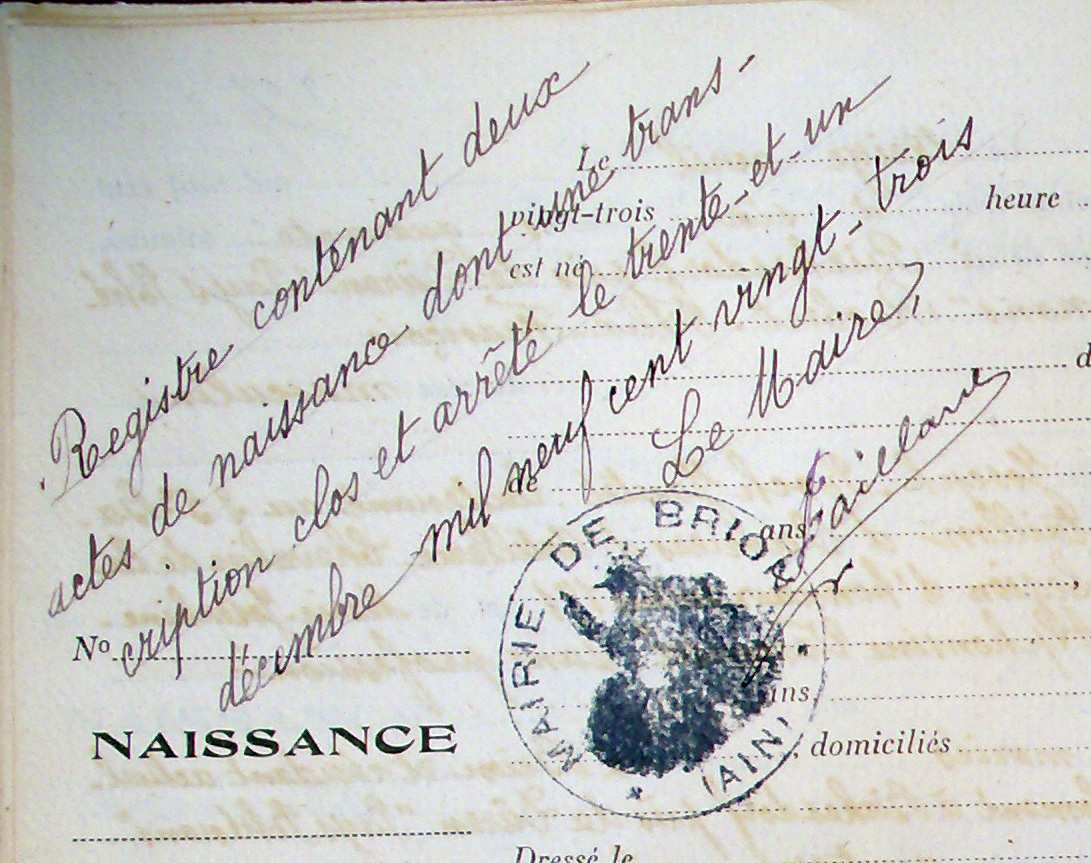 Registre contenant deux
actes de naissance dont une trans-
cription clos et arrêté le trente-et-un
décembre mil neuf cent vingt-trois
Le Maire,
Le
vingt-trois heure
est né
d
de
ans
,
No
ans.
NAISSANCE
domiciliés
MAIRIE DE BRION
(AIN)
Dressé le